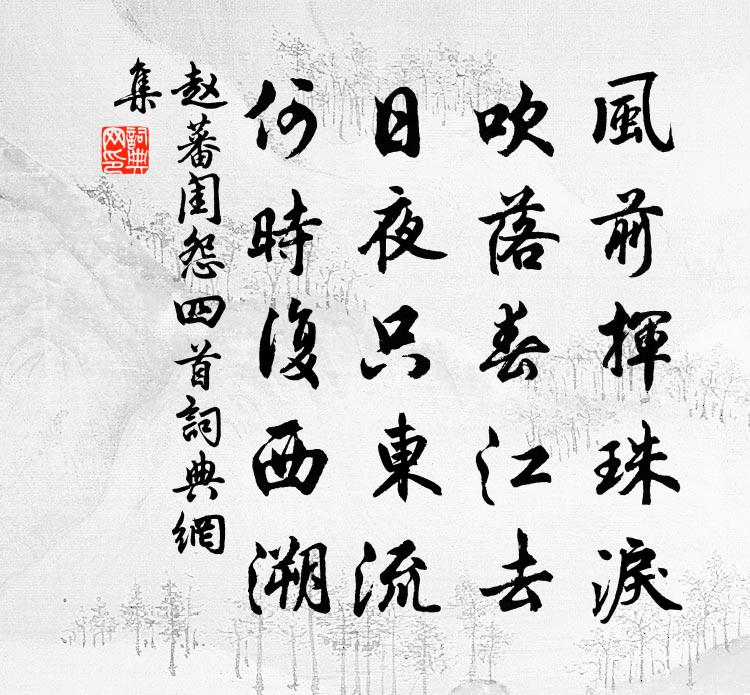 風前揮珠淚
吹落春江去
日夜只東流
何時復西溯
赵蕃閨怨四首詞典網
集
詞典網印